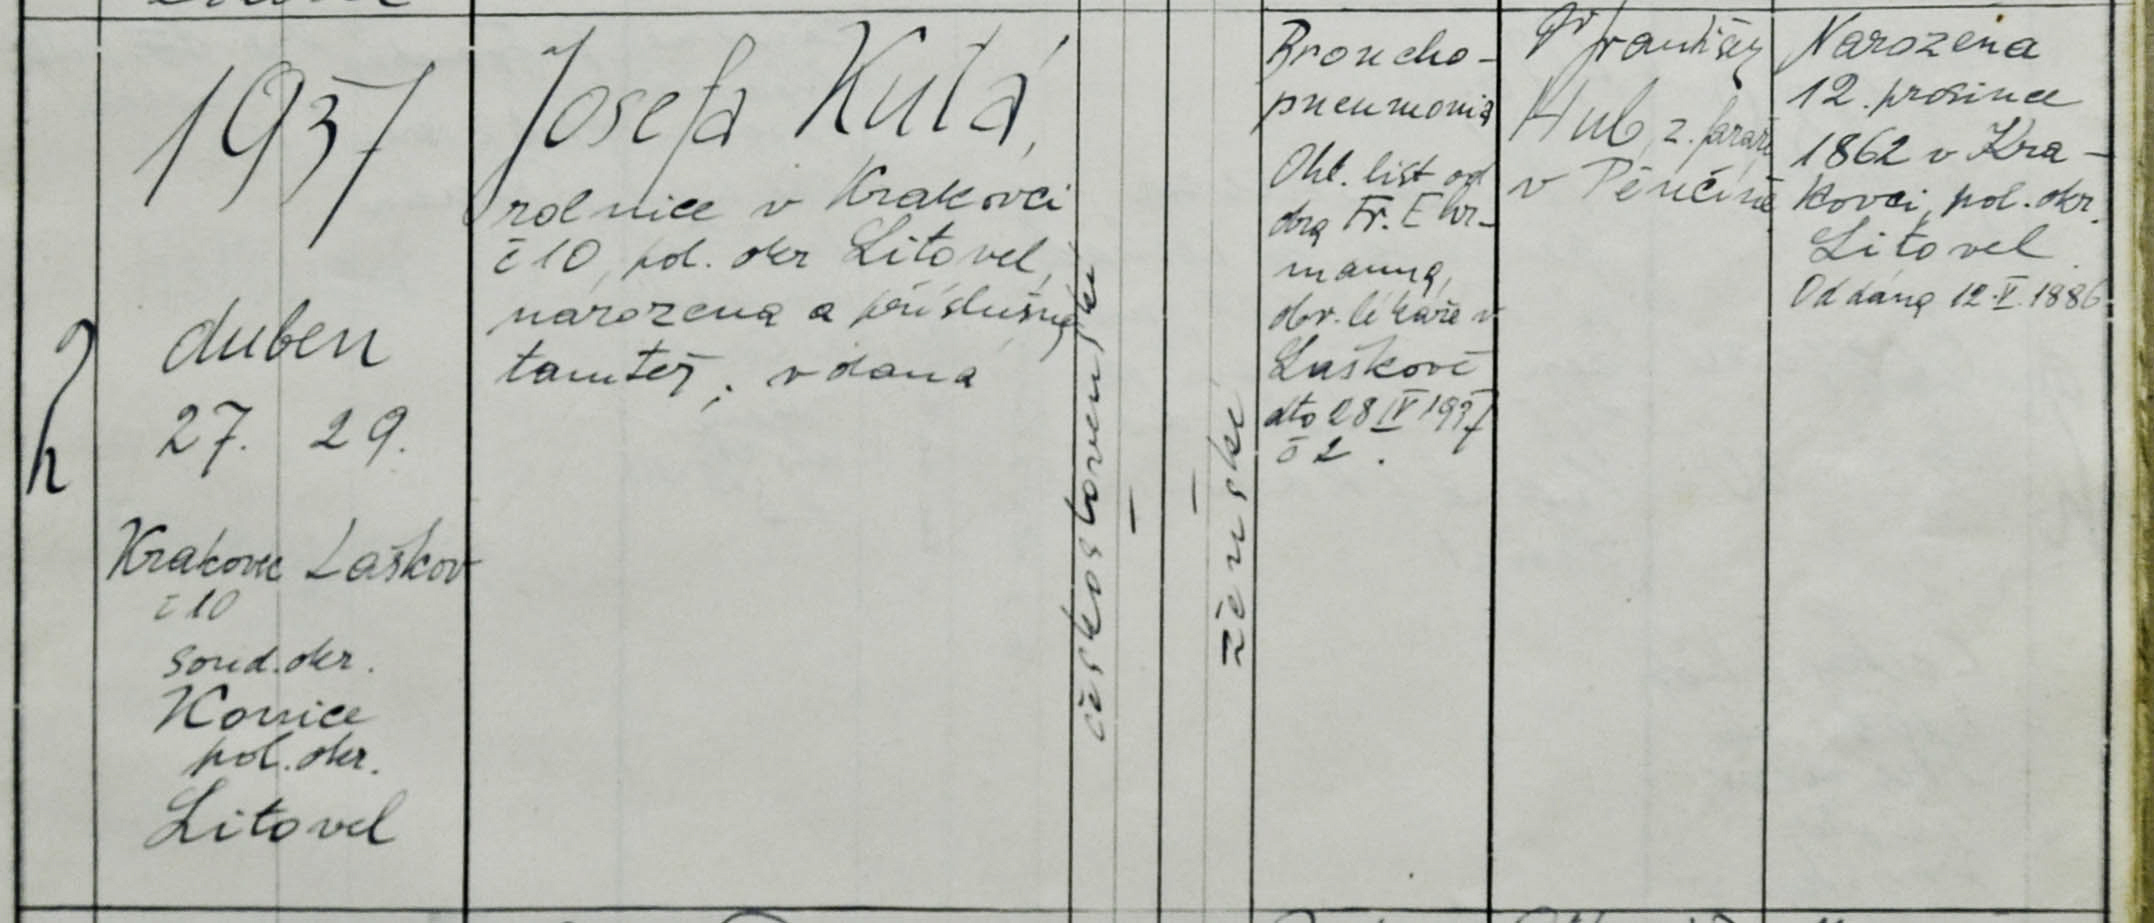 1937
duben
27. 29.
Krakovec Laškov
č 10
soud. okr.
Konice
pol. okr.
Litovel
Josefa Kutá,
rolnice v Krakovci
č 10, pol. okr Litovel,
narozena a příslušná
tamtéž, vdaná
československé
–
–
ženské
Broncho-
pneumonia
Ohl. list od
dra Fr. Ehr-
manna,
obv. lékaře v
Laškově
dto 28 IV 1937
č 2.
František
Hub, z. farář
v Pěnčíně
Narozena
12. prosince
1862 v Kra-
kovci, pol. okr.
Litovel.
Oddána 12.V.1886